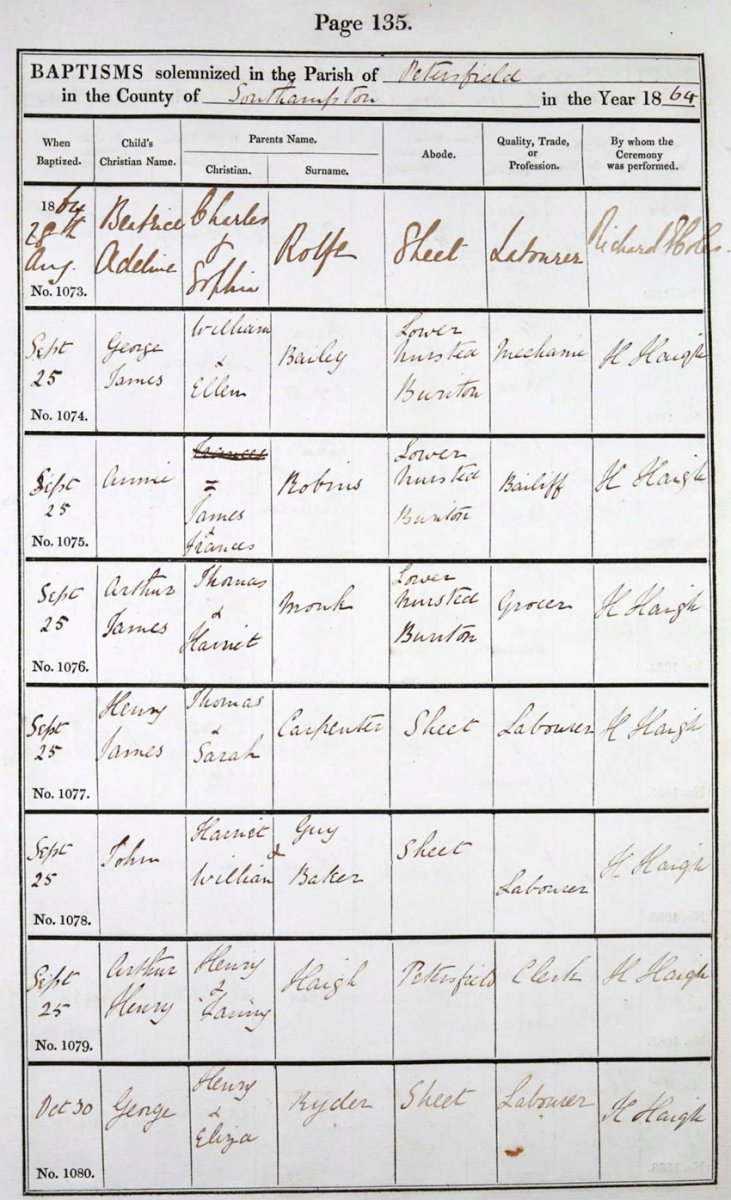 Page 135.
BAPTISMS solemnized in the Parish of Petersfield
in the County of Southampton in the Year 1864
When Baptized. Child's Christian Name. Parents Name. Abode. Quality, Trade, or Profession. By whom the Ceremony was performed.
Christian. Surname.
1864
28th
Aug.
No. 1073.
Beatrice
Adeline
Charles
&
Sophia
Rolfe
Sheet
Labourer
Richard
Sept
25
No. 1074.
George
James
William
&
Ellen
Bailey
Lower
Nursted
Buriton
Mechanic
H Haigh
Sept
25
No. 1075.
Annie
Frances
=
James
&
Frances
Robins
Lower
Nursted
Buriton
Bailiff
H Haigh
Sept
25
No. 1076.
Arthur
James
Thomas
&
Harriet
Monk
Lower
Nursted
Buriton
Grocer
H Haigh
Sept
25
No. 1077.
Henry
James
Thomas
&
Sarah
Carpenter
Sheet
Labourer
H Haigh
Sept
25
No. 1078.
John
Harriet Guy
&
William Baker
Sheet
Labourer
H Haigh
Sept
25
No. 1079.
Arthur
Henry
Henry
&
Fanny
Haigh
Petersfield
Clerk
H Haigh
Oct 30
No. 1080.
George
Henry
&
Eliza
Ryder
Sheet
Labourer
H Haigh